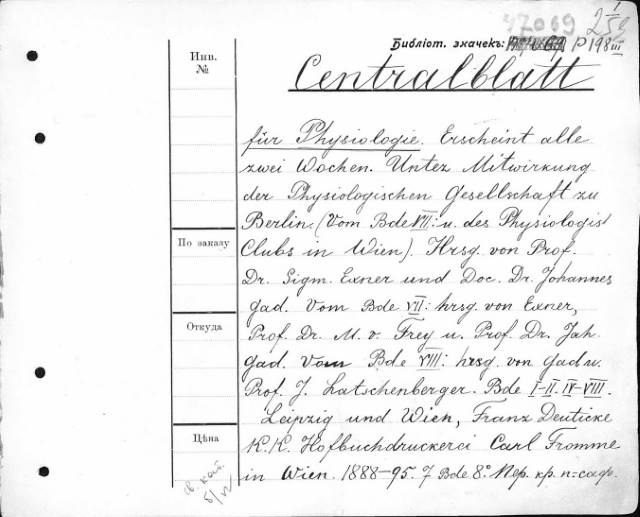 47069
Библіот. значекъ: P 198 III
Инв.
№
Centralblatt
für Physiologie. Erscheint alle
zwei Wochen. Unter Mitwirkung
der Physiologischen Gesellschaft zu
Berlin. (Vom Bde VII: u. des Physiologis
По заказу
Clubs in Wien). Hrsg. von Prof.
Dr. Sigm. Exner und Doc. Dr. Johannes
Gad. Vom Bde VII: hrsg. von Exner,
Откуда
Prof. Dr. M. v. Frey u. Prof. Dr. Joh.
Gad. Vom Bde VIII: hrsg. von Gad u.
Prof. J. Latschenberger. Bde I-II. IV-VIII.
Leipzig und Wien, Franz Deuticke
Цѣна
K. K. Hofbuchdruckerei Carl Fromme
in Wien. 1888-95. 7 Bde 8°. Пер. кр. п=саф.